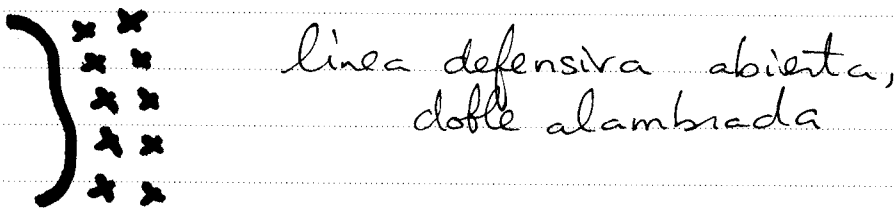 línea defensiva abierta,
doble alambrada